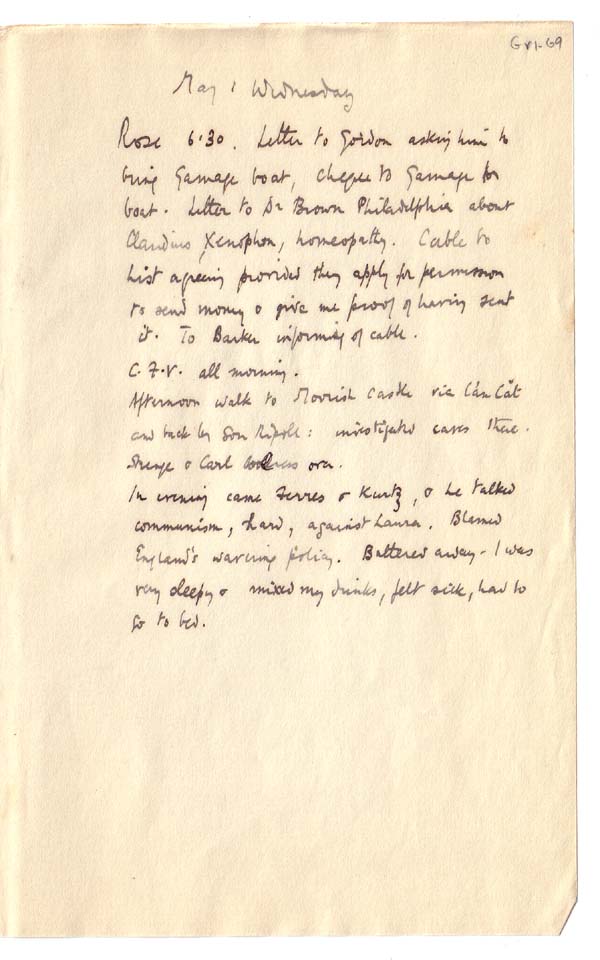 GVI-69
May 1 Wednesday
Rose 6.30. Letter to Gordon asking him to
bring Gamage boat, cheque to Gamage for
boat. Letter to Dr Brown Philadelphia about
Claudius, Xenophon, homeopathy. Cable to
List agreeing provided they apply for permission
to send money & give me proof of having sent
it. To Barker informing of cable.
C.F.V. all morning.
Afternoon walk to Moorish Castle via Can Cât
and back by Son Ripoll: investigated caves there.
& Carl over.
In evening came Ferres & Kurtz, & he talked
communism, hard, against Laura. Blamed
England's wavering policy. Battered away - I was
very sleepy & mixed my drinks, felt sick, had to
go to bed.